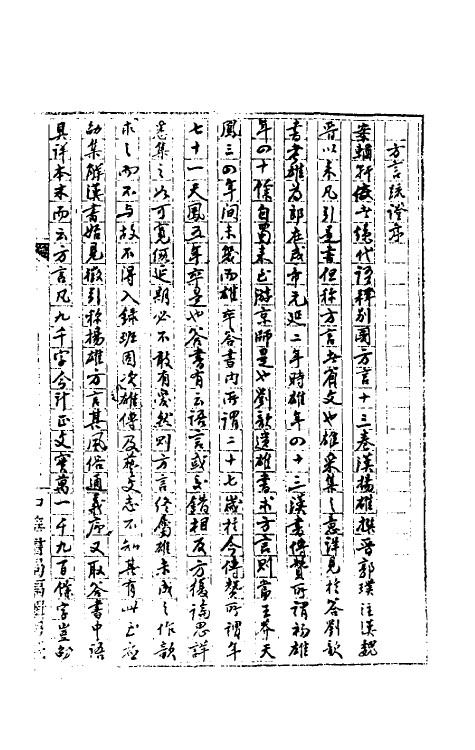 方言疏證序
案輶軒使者絕代語釋別國方言十三卷漢揚雄撰晉郭璞注漢魏
晉以来凡引是書但稱方言者省文也雄采集之意詳見於答劉歆
書考雄為郎在成帝元延二年時雄年四十三漢書傳贊所謂初雄
年四十餘自蜀来至游京師是也劉歆遺雄書求方言則當王莽天
鳳三四年間未幾而雄卒答書內所謂二十七歲於今傳贊所謂年
七十一天鳳五年卒是也答書有云語言或交錯相反方復論思詳
悉集之如可寬假延期必不敢有愛然則方言終屬雄未成之作歆
求之而不与故不得入錄班固次雄傳及藝文志不知其有此至應
劭集解漢書始見徵引稱揚雄方言其風俗通義序又取答書中語
具詳本末而云方言凡九千字今計正文實萬一千九百餘字豈劭